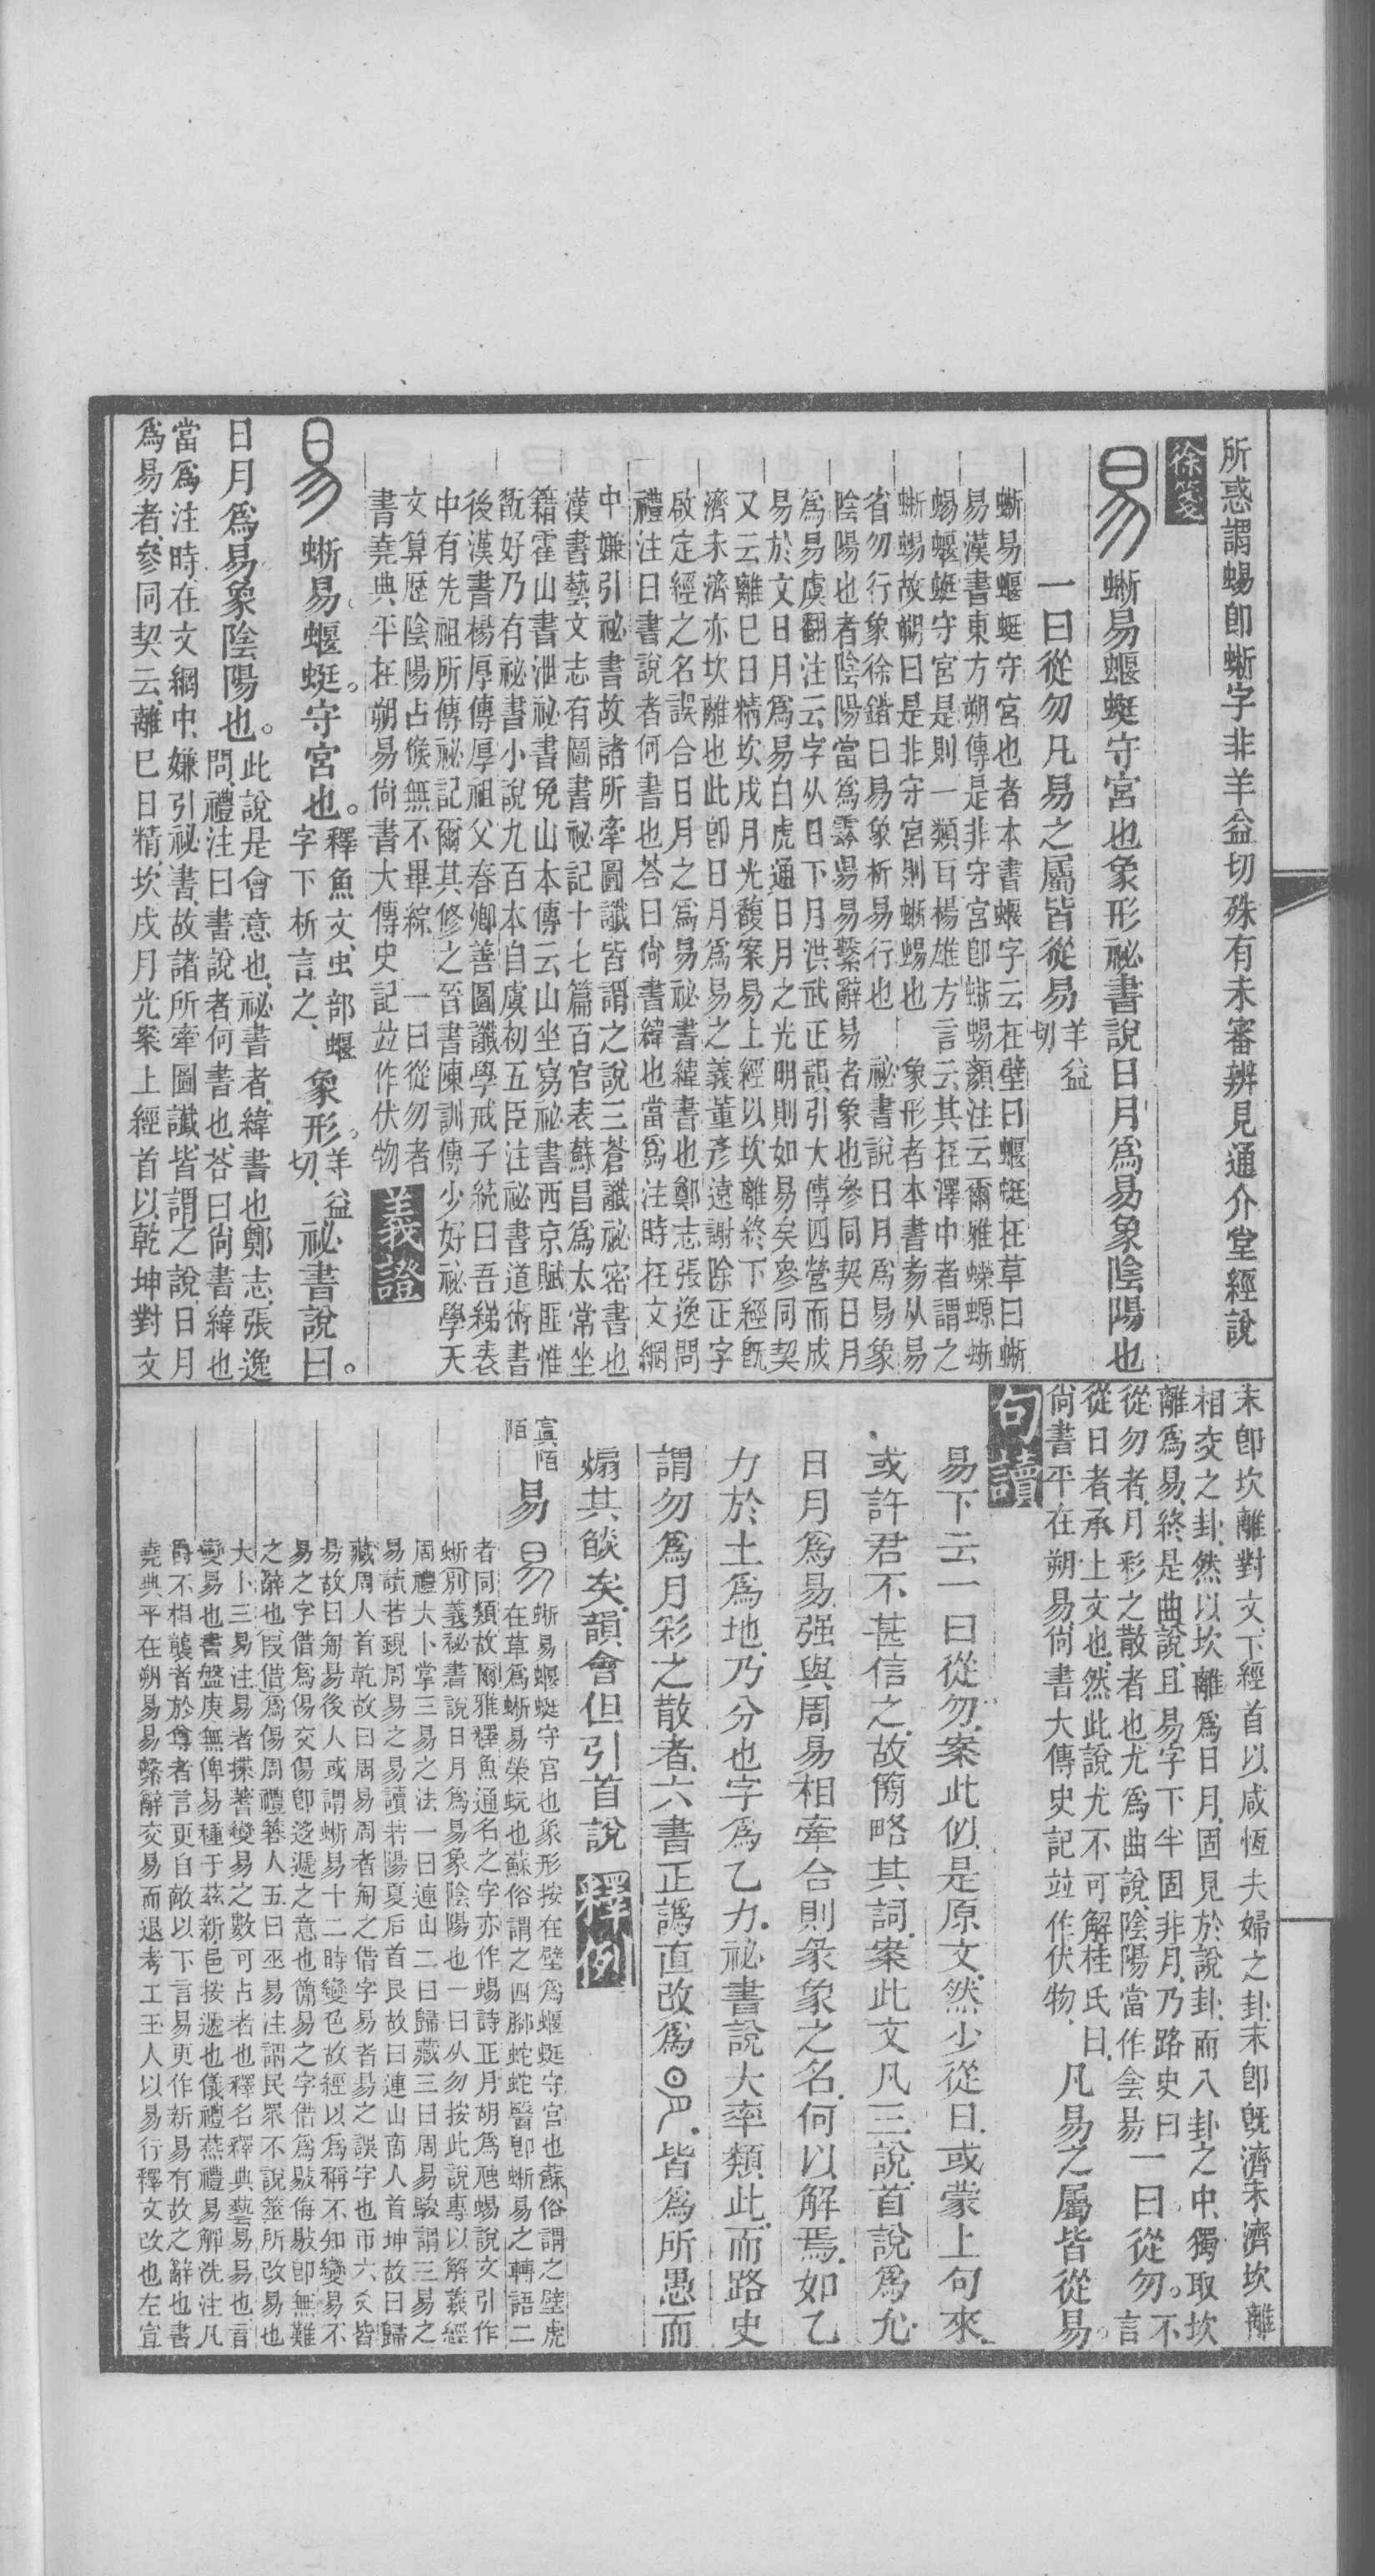 所惑謂蜴即蜥字非羊益切殊有未審辨見通介堂經說
徐箋
易 蜥易蝘蜓守宮也象形祕書說日月爲易象陰陽也
一曰從勿凡易之屬皆從易 羊益
切
蜥易蝘蜓守宮也者本書蝘字云在壁曰蝘蜓在草曰蜥
易漢書東方朔傳是非守宮卽蜥蜴顏注云爾雅蠑螈蜥
蜴蝘蜓守宮是則一類耳楊雄方言云其在澤中者謂之
蜥蜴故朔曰是非守宮則蜥蜴也 象形者本書豸从易
省勿行象徐鍇曰易象析易行也 祕書說日月爲易象
陰陽也者陰陽當爲霒昜易繫辭易者象也參同契日月
爲易虞翻注云字从日下月洪武正韻引大傳四營而成
易於文日月爲易白虎通日月之光明則如易矣參同契
又云離已日精坎戊月光馥案易上經以坎離終下經旣
濟未濟亦坎離也此卽日月爲易之義董彥遠謝除正字
啟定經之名誤合日月之爲易祕書緯書也鄭志張逸問
禮注曰書說者何書也荅曰尙書緯也當爲注時在文網
中嫌引祕書故諸所牽圖讖皆謂之說三蒼讖祕密書也
漢書藝文志有圖書祕記十七篇百官表蘇昌爲太常坐
籍霍山書泄祕書免山本傳云山坐寫祕書西京賦匪惟
翫好乃有祕書小說九百本自虞初五臣注祕書道術書
後漢書楊厚傳厚祖父春卿善圖讖學戒子統曰吾綈袠
中有先祖所傳祕記爾其修之晉書陳訓傳少好祕學天
文算歷陰陽占候無不畢綜 一曰從勿者
書堯典平在朔易尙書大傳史記竝作伏物
義證
易 蜥易蝘蜓守宮也。釋魚文虫部蝘
字下析言之 象形。羊益
切 祕書說曰。
日月爲易象陰陽也。此說是會意也祕書者緯書也鄭志張逸
問禮注曰書說者何書也荅曰尙書緯也
當爲注時在文網中嫌引祕書故諸所牽圖讖皆謂之說日月
爲易者參同契云離已日精坎戊月光案上經首以乾坤對文
末卽坎離對文下經首以咸恆夫婦之卦末卽旣濟未濟坎離
相交之卦然以坎離爲日月固見於說卦而八卦之中獨取坎
離爲易終是曲說且易字下半固非月乃路史曰 一曰從勿。不言
從勿者月彩之散者也尤爲曲說陰陽當作侌昜
從日者承上文也然此說尤不可解桂氏曰
尙書平在朔易尙書大傳史記竝作伏物 凡易之屬皆從易。
句讀
易下云一曰從勿案此似是原文然少從日或蒙上句來
或許君不甚信之故簡略其詞案此文凡三說首說爲允
日月爲易強與周易相牽合則彖象之名何以解焉如乙
力於土爲地乃分也字爲乙力祕書說大率類此而路史
謂勿爲月彩之散者六書正譌直改爲皆爲所愚而
煽其餤矣韻會但引首說
釋例
寘陌
陌
易 易 蜥易蝘蜓守宮也象形按在壁爲蝘蜓守宮也蘇俗謂之壁虎
在草爲蜥易榮蚖也蘇俗謂之四腳蛇蛇醫卽蜥易之轉語二
者同類故爾雅釋魚通名之字亦作蜴詩正月胡爲虺蜴說文引作
蜥別義祕書說日月爲易象陰陽也一曰从勿按此說專以解羲經
周禮大卜掌三易之法一曰連山二曰歸藏三曰周易駿謂三易之
易讀若覡周易之易讀若陽夏后首艮故曰連山商人首坤故曰歸
藏周人首乾故曰周易周者匊之借字易者昜之誤字也帀六爻皆
昜故曰匊昜後人或謂蜥易十二時變色故經以爲稱不知變易不
易之字借爲傷交傷卽迻遞之意也簡易之字借爲敭侮敭卽無難
之辭也段借爲傷周禮簭人五曰巫易注謂民眾不說筮所改易也
大卜三易注易者揲蓍變易之數可占者也釋名釋典藝易易也言
變易也書盤庚無俾易種于茲新邑按遞也儀禮燕禮易觶洗注凡
爵不相襲者於尊者言更自敵以下言易更作新易有故之辭也書
堯典平在朔易易繫辭交易而退考工玉人以易行釋文改也左宣